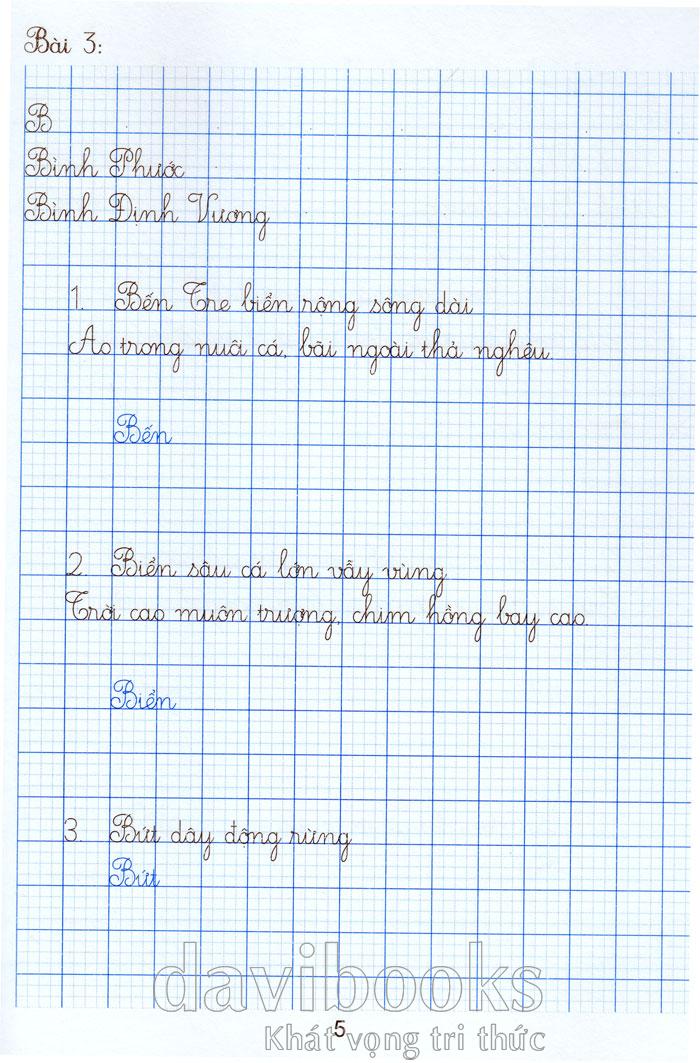 Bài 3:
B
Bình Phước
Bình Định Vương
1. Bến Tre biển rộng sông dài
Ao trong nuôi cá, bãi ngoài thả nghêu.
Bến
2. Biển sâu cá lớn vẫy vùng
Trời cao muôn trượng, chim hồng bay cao.
Biển
3. Bứt dây động rừng
Bứt
davibooks
5
Khát vọng tri thức